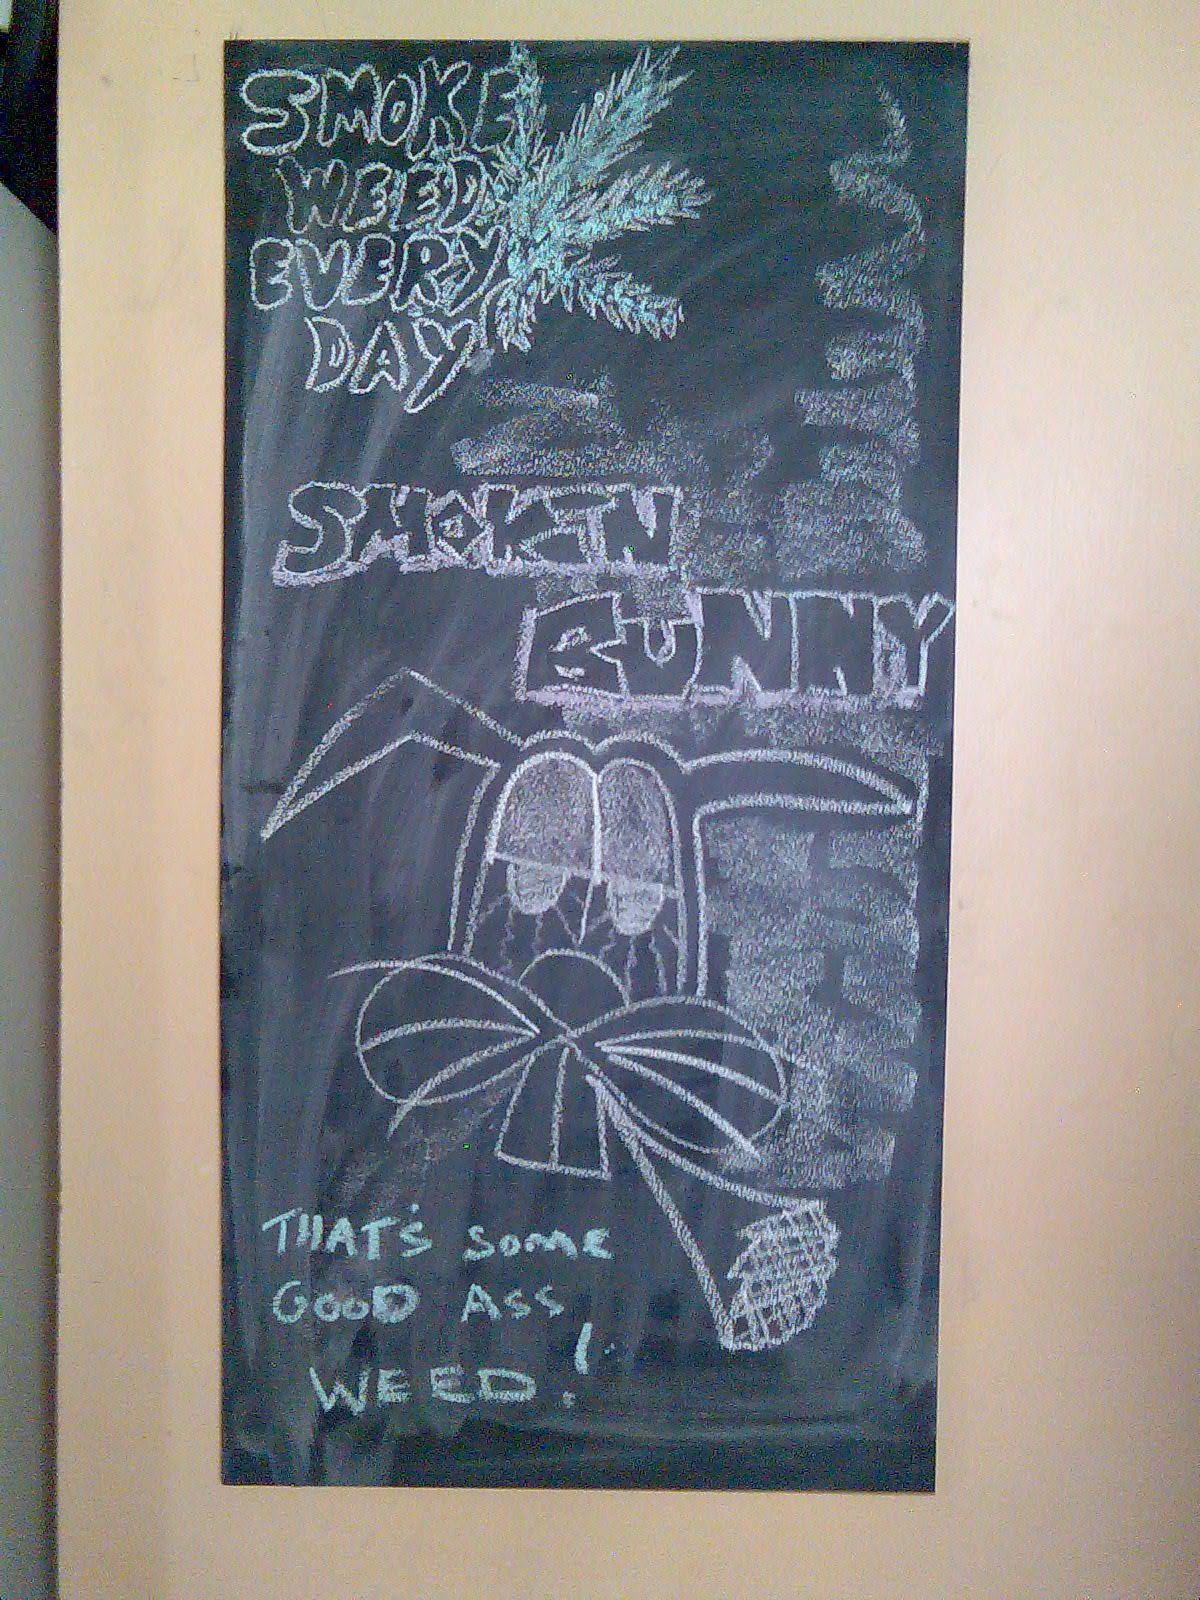 SMOKE
WEED
EVERY
DAY
SMOKIN
BUNNY
THAT'S SOME
GOOD ASS
WEED!